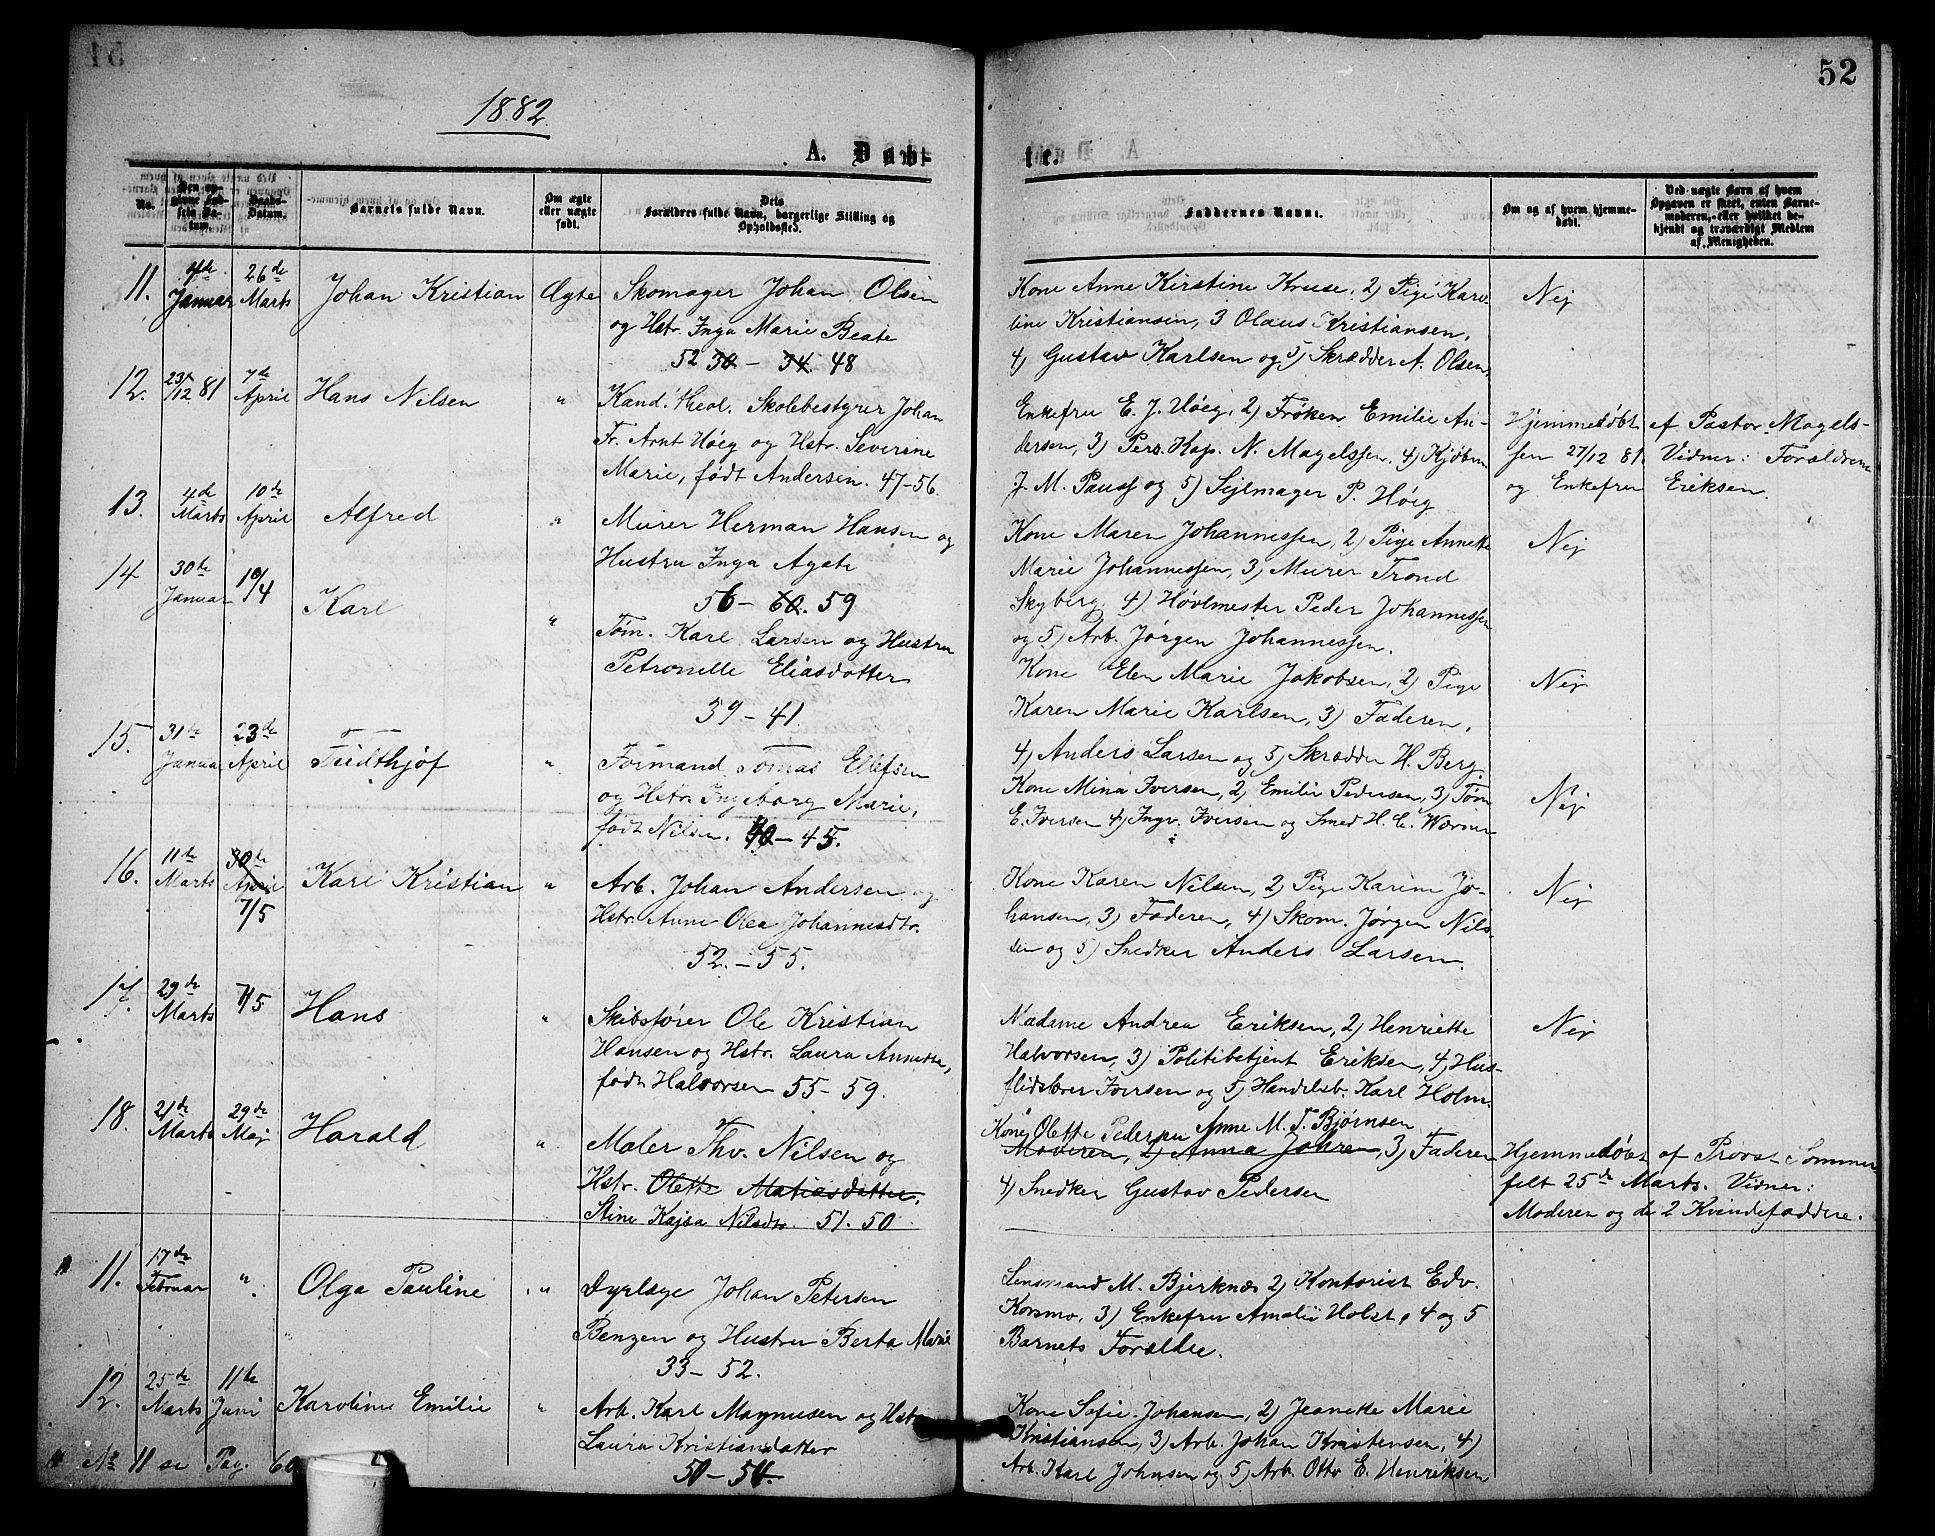 52
1882.
A. Døbte.
No.
Den opgivne Fødsels Datum.
Daabs-Datum.
Barnets fulde Navn.
Om ægte eller uægte født.
Dets Forældres fulde Navn, borgerlige Stilling og Opholdssted.
Faddernes Navne.
Om og af hvem hjemmedøbt.
Ved uægte Børn af hvem Opgaven er skeet, enten Barnemoderen, eller hvilket bekjendt og troværdigt Medlem af Menigheden.
11. Januar 26de Marts Johan Kristian Ægte Skomager Johan Olsen
og Hstr. Inga Marie Beate
52 30 - 34. 48
Kone Anne Kirstine Kruse, 2) Pige Karo-
line Kristiansen, 3 Olaus Kristiansen,
4) Gustav Karlsen og 5) Skrædder A. Olsen,
Nej
12. 23/12 81 7de April Hans Nilsen " Kand. theol. Skolebestyrer Johan
Fr. Arnt Høeg og Hstr. Severine
Marie, født Andersen. 47-56.
Enkefru E. J. Høeg, 2) Frøken Emilie An-
dersen, 3) Pers. Kap. N. Magelssen, 4) Kjøbm
J. M. Pauss og 5) Sejlmager P. Høeg
Hjemmedøbt af Pastor Magels-
sen 27/12 81. Vidner: Forældrene
og Enkefru Eriksen.
13. 4de Marts 10de April Alfred " Murer Herman Hansen og
Hustru Inga Agate
56 - 60. 59
Kone Maren Johannessen, 2) Pige Annette
Marie Johannessen, 3) Murer Trond
Skyberg, 4) Høvlmester Peder Johannessen
og 5) Arb. Jørgen Johannessen.
Nej
14 30te Januar 10/4 Karl " Tøm. Karl Larsen og Hustru
Petronelle Eliasdatter
39 - 41.
Kone Elen Marie Jakobsen, 2) Pige
Karen Marie Karlsen, 3) Faderen,
4) Anders Larsen og 5) Skrædder H. Berg.
Nej
15. 31te Januar 23de April Fridthjof " Formand Tomas Ellefsen
og Hstr. Ingeborg Marie,
født Nilsen. 40 - 45.
Kone Mina Iversen, 2) Emilie Pedersen, 3) Tøm
E. Iversen 4) Ingv. Iversen og Smed H. C. Warner
Nej
16. 11te Marts 30te April 7/5 Karl Kristian " Arb. Johan Andersen og
Hstr. Anne Olea Johannesdtr.
52. - 55.
Kone Karen Nilsen, 2) Pige Karine Jo-
hansen, 3) Faderen, 4) Skom. Jørgen Nils-
sen og 5) Snedker Anders Larsen.
Nej
17. 29de Marts 7/5 Hans " Skibsfører Ole Kristian
Hansen og Hstr. Laura Annette,
født Halvorsen 55 - 59.
Madame Andrea Eriksen, 2) Henriette
Halvorsen, 3) Politibetjent Eriksen, 4) Hus-
flidslærer Iversen og 5) Handelsb. Karl Holm.
Nej
18. 21de Marts 29de Maj Harald " Maler Thv. Nilsen og
Hstr. Olette Matiasdatter,
Stine Kajsa Nilsdtr. 51. 50
Kone, Olette Pedersen Anne M. T. Bjørnsen
Moderen, 2) Anna Johren, 3) Faderen
4) Snedker Gustav Pedersen
Hjemmedøbt af Provst Sommer
felt 25de Marts. Vidner:
Moderen og de 2 Kvindefaddere.
11. 17de Februar " Olga Pauline " Dyrlæge Johan Petersen
Benzen og Hustru Berta Marie
33 - 52.
Lensmand M. Bjerknæs 2) Kontorist Edv.
Korsmo, 3) Enkefru Amalie Holst, 4 og 5
Barnets Forældre.
12. 25de Marts 11te Juni Karoline Emilie " Arb. Karl Magnusen og Hstr
Laura Kristiansdatter
50 - 54.
Kone Sofie Johansen, 2) Jeanette Marie
Kristiansen, 3) Arb. Johan Kristensen, 4)
Arb. Karl Johnsen og 5) Arb. Otto E. Henriksen
No 11 se Pag. 60